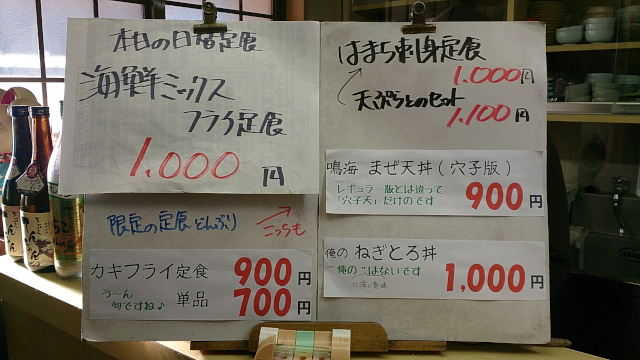 本日の日替定食
海鮮ミックス
フライ定食
1.000円
限定の定食どんぶり
こっちも
カキフライ定食 900円
う〜ん
旬ですね♪
単品 700円
はまち刺身定食
1.000円
天ぷらとのセット
1.100円
鳴海 まぜ天丼(穴子版)
レギュラー版とは違って
「穴子天」だけのです
900円
俺の ねぎとろ丼
俺の”はないです
1,000円